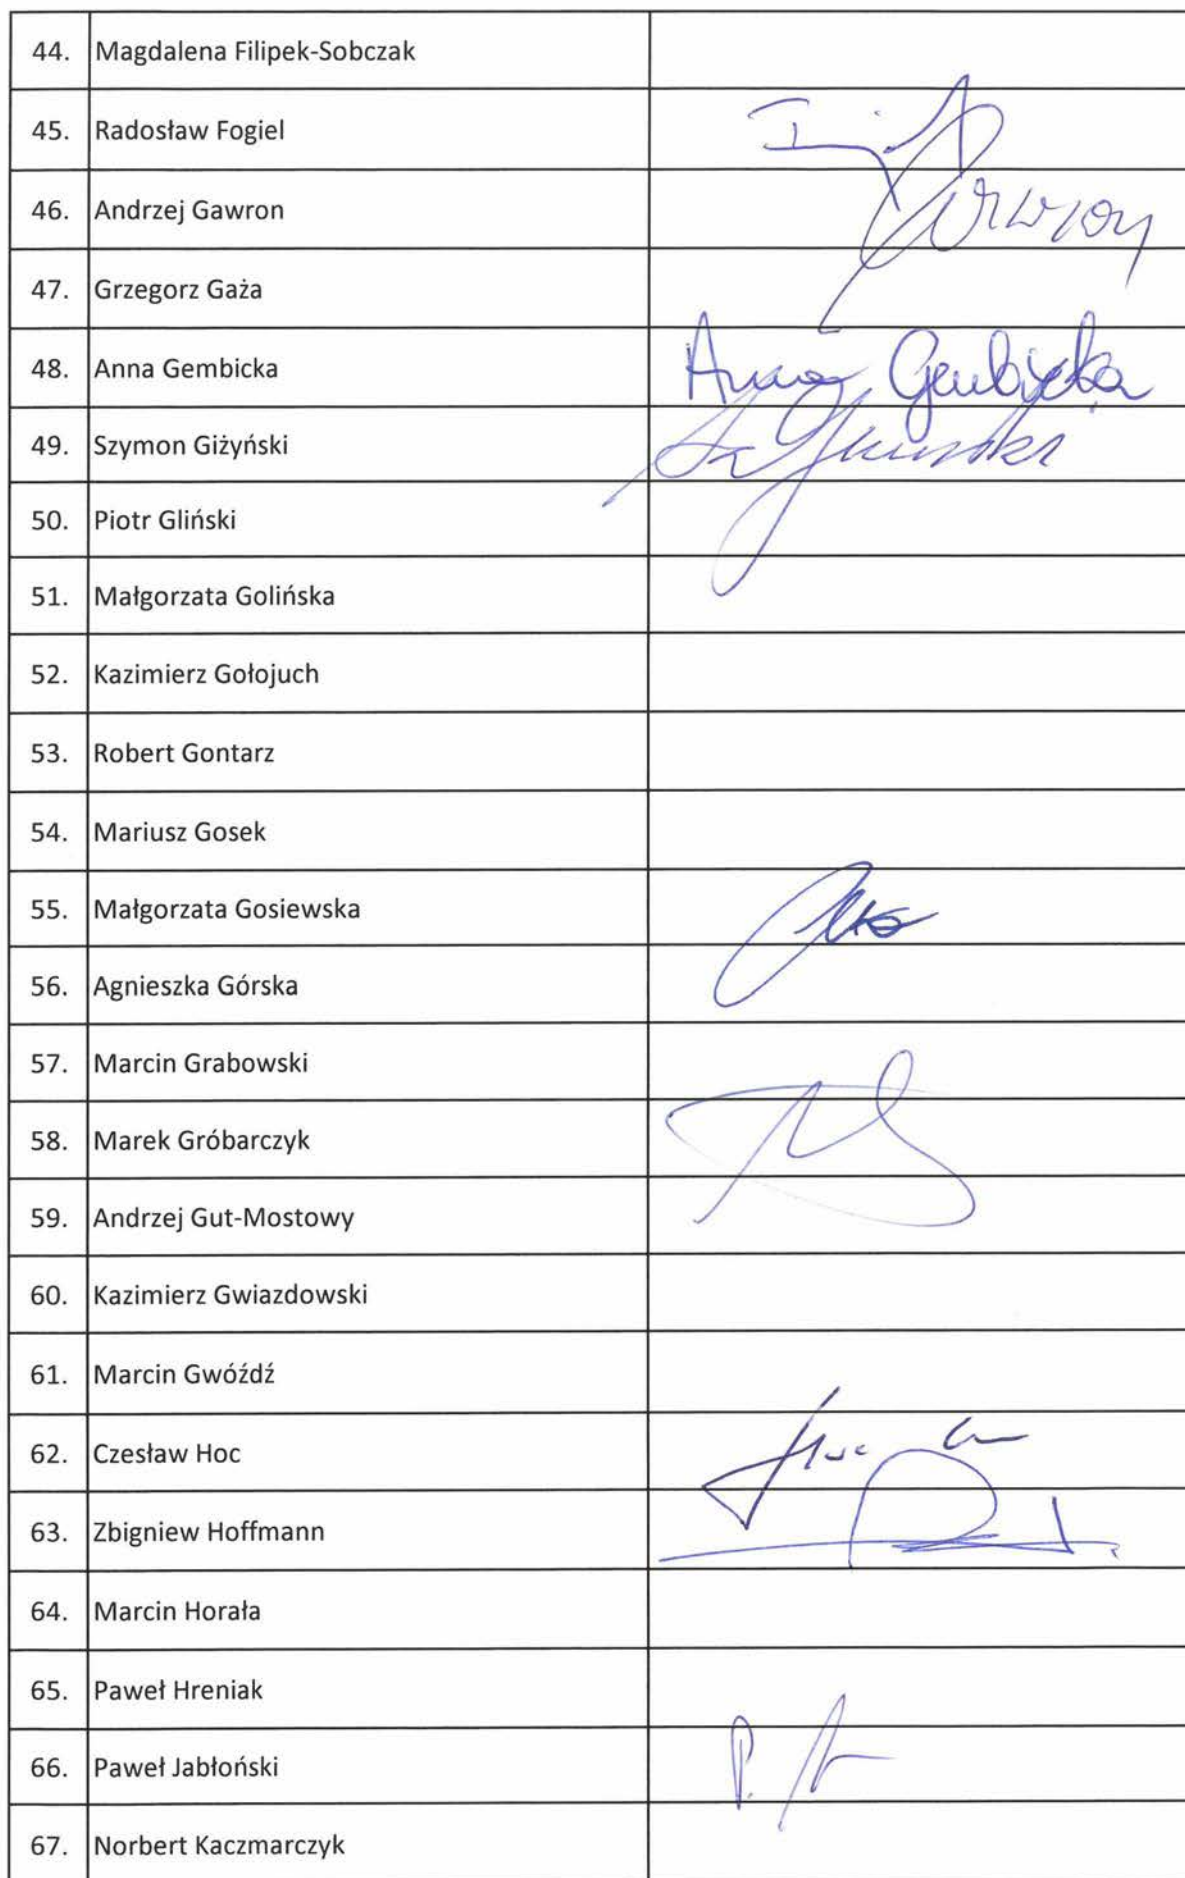 44. Magdalena Filipek-Sobczak
45. Radosław Fogiel
46. Andrzej Gawron Gawron
47. Grzegorz Gaża
48. Anna Gembicka Anna Gembicka
49. Szymon Giżyński
50. Piotr Gliński
51. Małgorzata Golińska
52. Kazimierz Gołojuch
53. Robert Gontarz
54. Mariusz Gosek
55. Małgorzata Gosiewska
56. Agnieszka Górska
57. Marcin Grabowski
58. Marek Gróbarczyk
59. Andrzej Gut-Mostowy
60. Kazimierz Gwiazdowski
61. Marcin Gwóźdź
62. Czesław Hoc
63. Zbigniew Hoffmann
64. Marcin Horała
65. Paweł Hreniak
66. Paweł Jabłoński
67. Norbert Kaczmarczyk